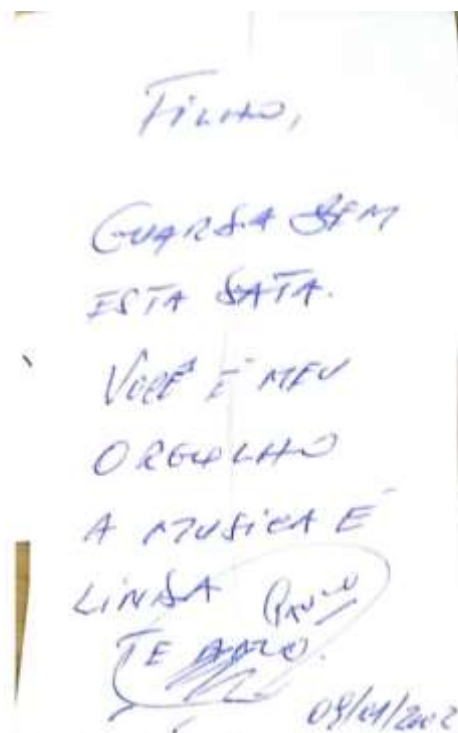 FILHO,
GUARDA BEM
ESTA DATA.
VOCÊ É MEU
ORGULHO
A MUSICA É
LINDA
PAULO
TE AMO.
09/01/2002